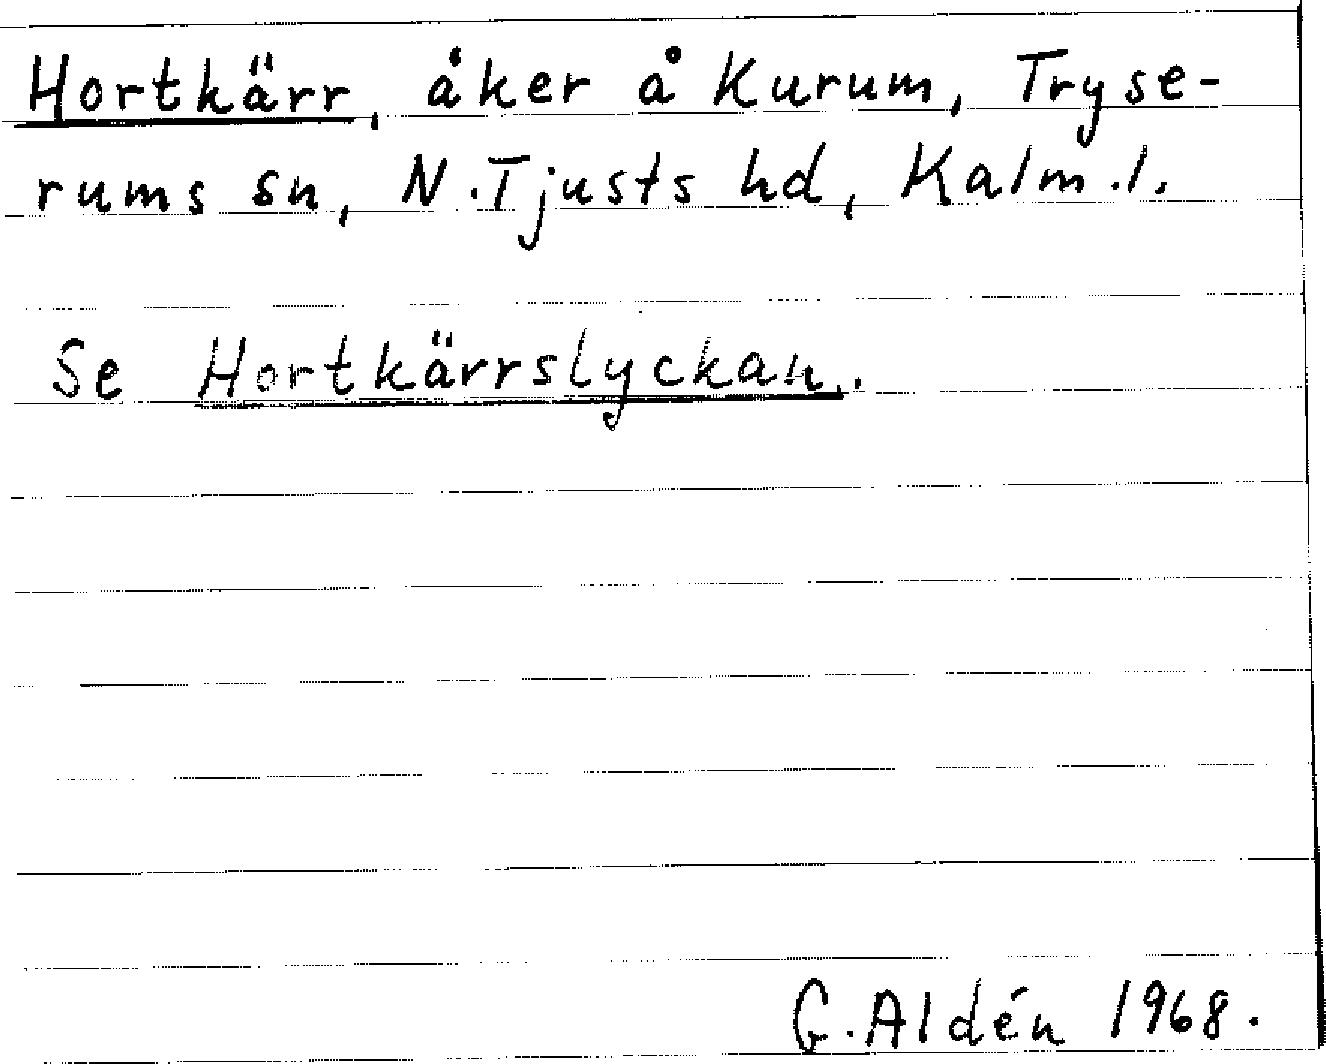 Hortkärr, åker å Kurum, Tryse-
rums sn, N.Tjusts hd, Kalm.l.
Se Hortkärrslyckan.
G.Aldén 1968.